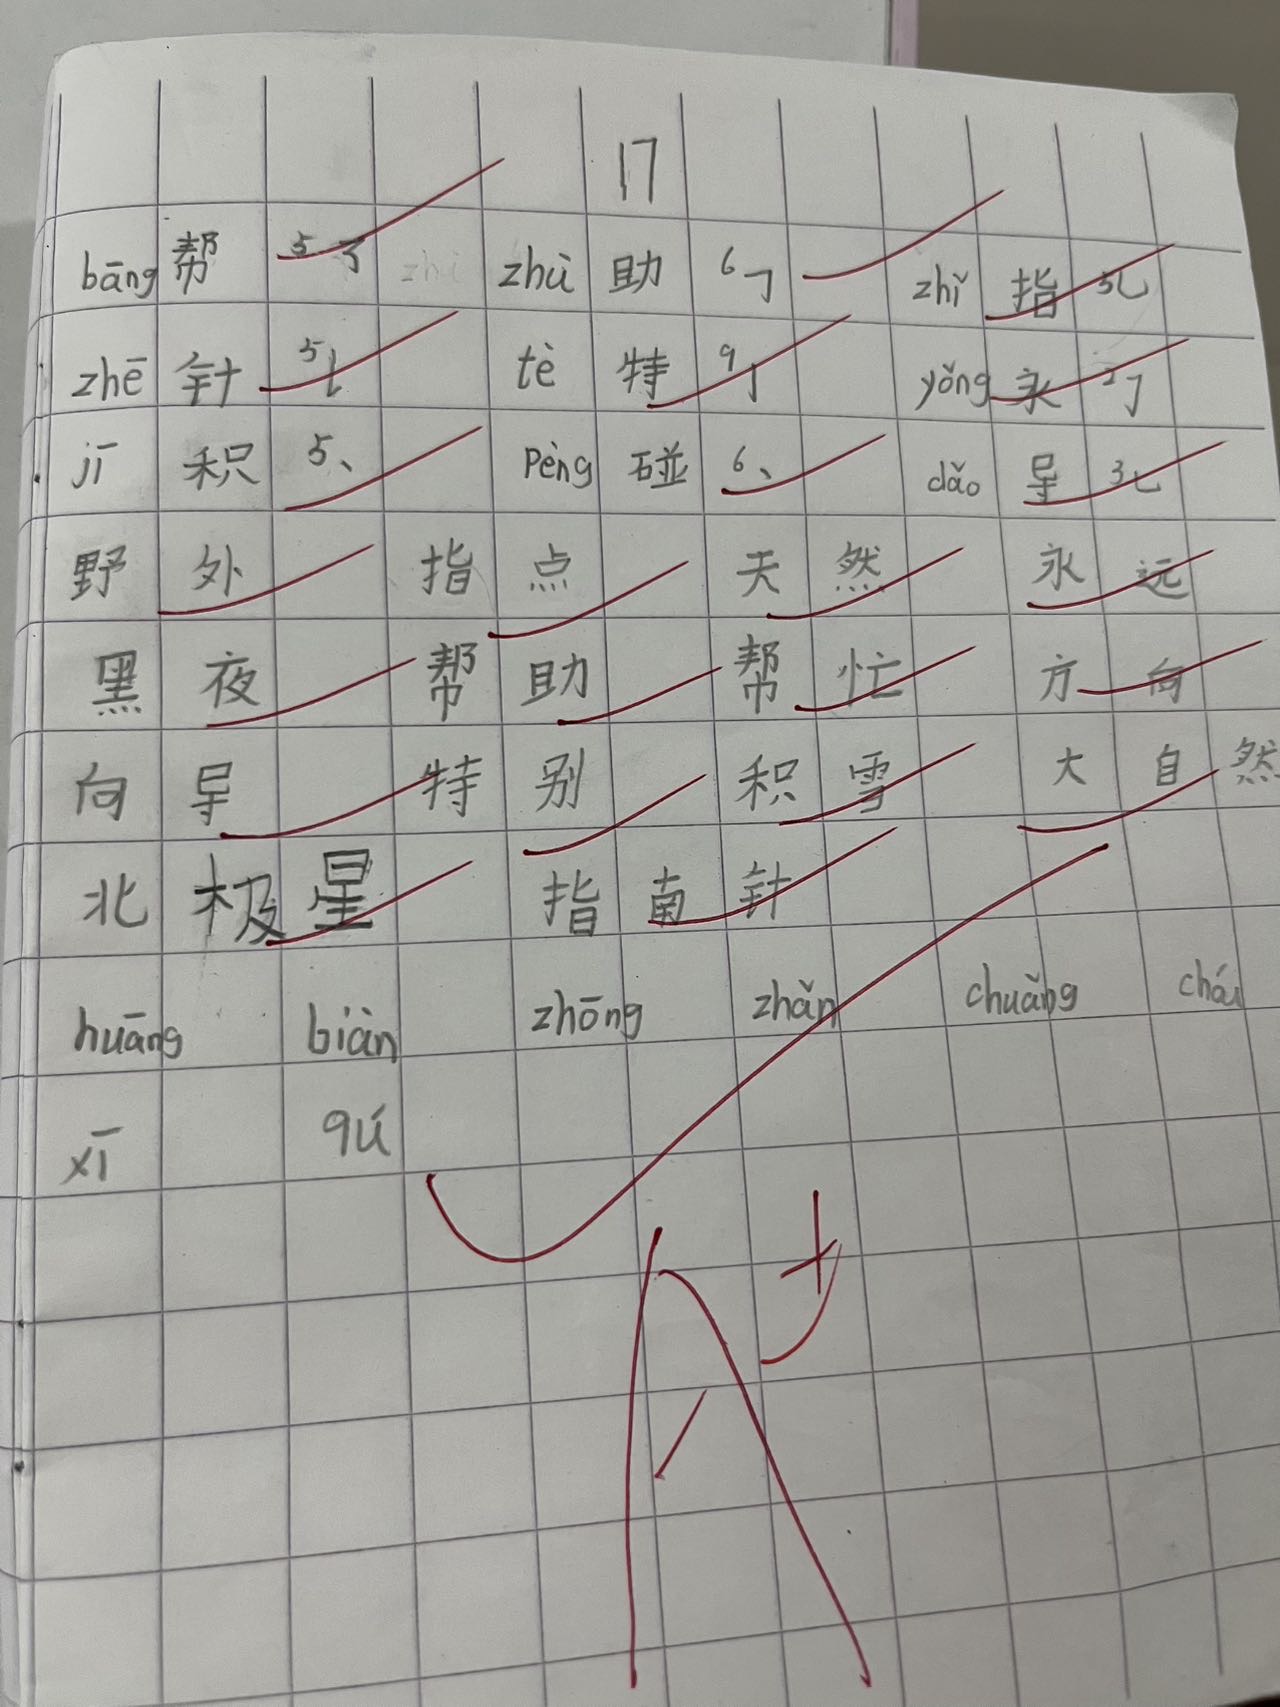 17
bāng 帮 5 ㇋ zhù 助 6 ㇆ zhǐ 指 5 ㇈
zhē 针 5 ㇙ tè 特 9 亅 yǒng 永 2 ㇆
jī 积 5 、 pèng 碰 6 、 dǎo 导 3 ㇈
野外 指点 天然 永远
黑夜 帮助 帮忙 方向
向导 特别 积雪 大自然
北极星 指南针
huāng biàn zhōng zhǎn chuǎng chái
xī qú
A+